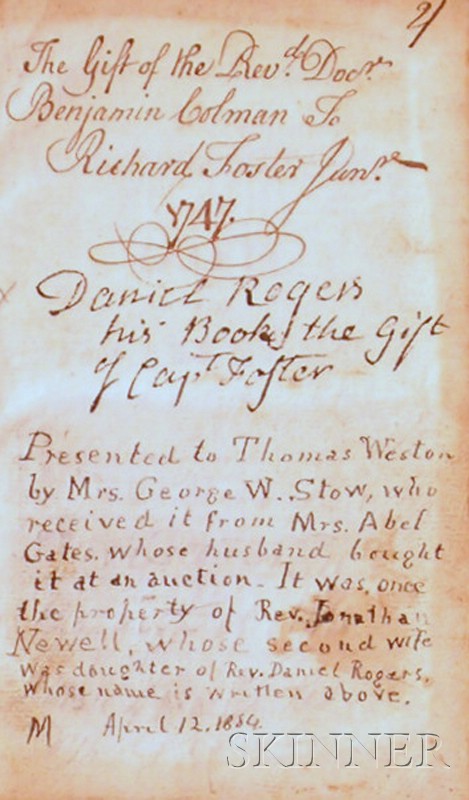 2/
The Gift of the Revd. Docr.
Benjamin Colman To
Richard Foster Junr.
1747.
Daniel Rogers
his Book the Gift
of Capt Foster
Presented to Thomas Weston
by Mrs. George W. Stow, who
received it from Mrs. Abel
Gates. whose husband bought
it at an auction. It was, once
the property of Rev. Jonathan
Newell, whose second wife
was daughter of Rev. Daniel Rogers,
whose name is written above.
M April 12. 1884.
SKINNER